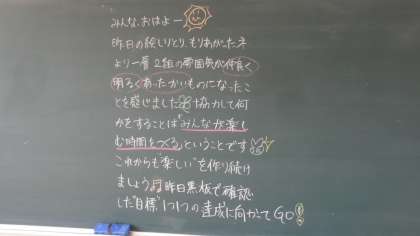 みんな、おはよー
昨日の絵しりとり、もりあがったネ
より一層2組の雰囲気が仲良く
明るくあったかいものになったこ
とを感じました 協力して何
かをすることは「みんなが楽し
む時間をつくる」ということです
これからも"楽しい"を作り続け
ましょう♫昨日黒板で確認
した"目標"1つ1つの達成に向かってGO!